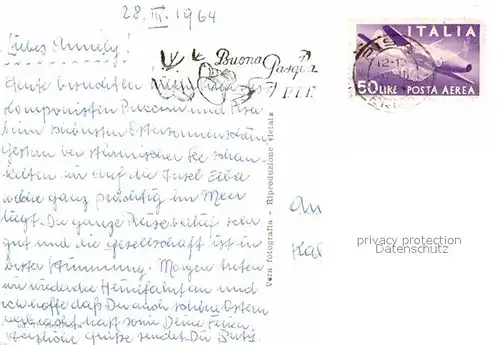 28. III. 1964
Liebes Annely!
Buona Pasqua
P.T.T.
ITALIA
50 LIRE POSTA AEREA
Heute besuchten
Komponisten Puccini und Pisa
beim schönsten Ostersonnenschein
Gestern bei stürmischer See schau-
kelten wir auf die Insel Elba
welche ganz prächtig im Meer
liegt. Die ganze Reise verlief sehr
gut und die Gesellschaft ist in
bester Stimmung. Morgen treten
wir wieder die Heimfahrt an und
ich hoffe daß Du auch schöne Ostern
verbracht hast sowie Deine Ferien
Herzliche Grüße sendet Dir
Vera fotografia - Riproduzione vietata
An
privacy protection
Datenschutz